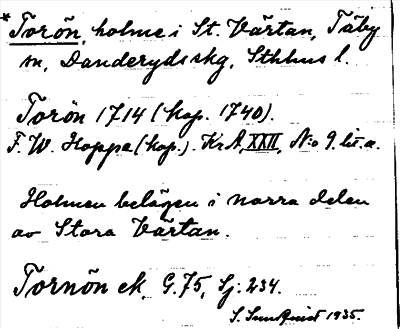 * Torön, holme i St. Värtan, Täby
sn, Danderyds skg, Sthlms l.
Torön 1714 (kop. 1740).
F. W. Hoppe (kop.). KrA, XXII, No 9. lit. a.
Holmen belägen i norra delen
av Stora Värtan.
Tornön ek. G. 75, Sj. 234.
S. Sundquist 1935.